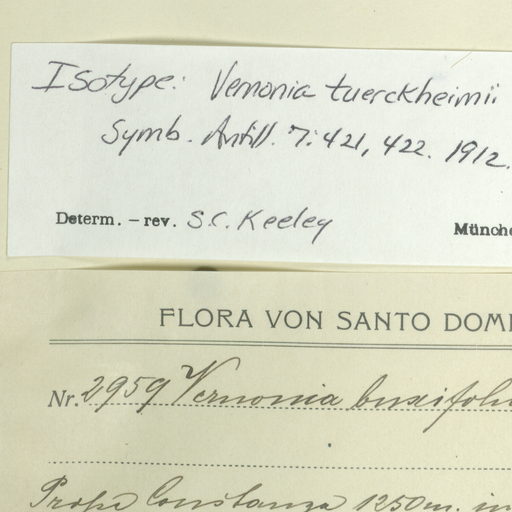 Isotype: Vernonia tuerckheimii
Symb. Antill. 7: 421, 422. 1912.
Determ. – rev. S.C. Keeley Münche
FLORA VON SANTO DOMI
Nr. 2959 Vernonia buxifoli
Prope Constanza 1250 m. in